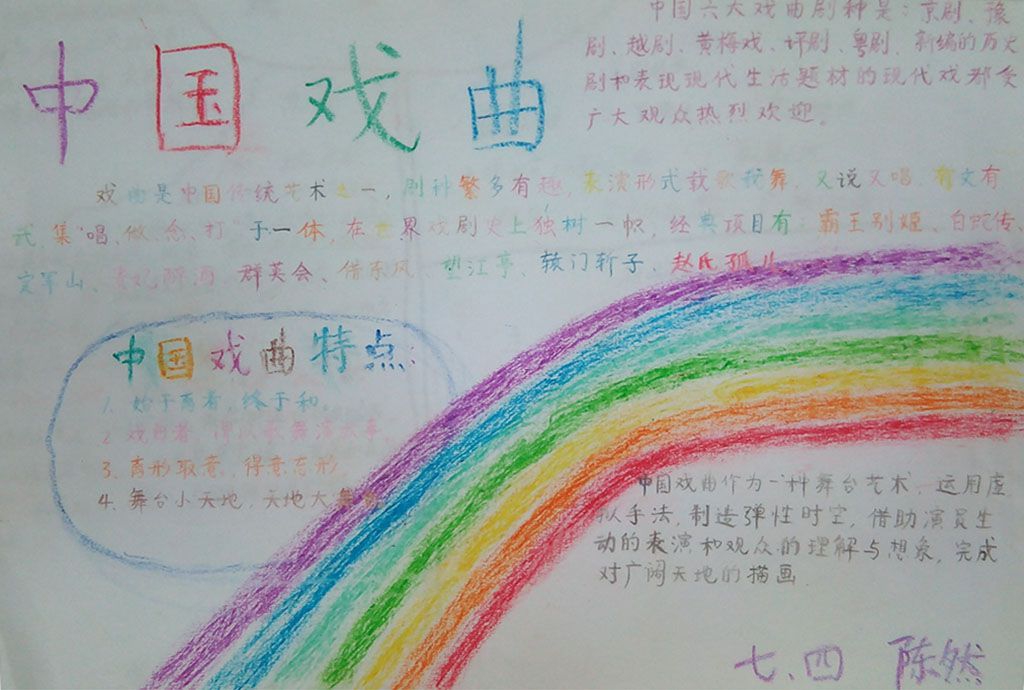 中国戏曲
中国六大戏曲剧种是:京剧、豫
剧、越剧、黄梅戏、评剧、粤剧、新编的历史
剧和表现现代生活题材的现代戏都受
广大观众热烈欢迎。
戏曲是中国传统艺术之一,剧种繁多有趣,表演形式载歌载舞,又说又唱,有文有
武,集"唱、做、念、打"于一体,在世界戏剧史上独树一帜,经典项目有:霸王别姬、白蛇传、
定军山、贵妃醉酒、群英会、借东风、望江亭、辕门斩子、赵氏孤儿
中国戏曲特点:
1. 始于离者,终于和。
2. 戏曲者,以歌舞演故事。
3. 形取意,得意忘形。
4. 舞台小天地,天地大舞台
中国戏曲作为一种舞台艺术,运用虚
拟手法,制造弹性时空,借助演员生
动的表演和观众的理解与想象,完成
对广阔天地的描画.
七.四 陈然